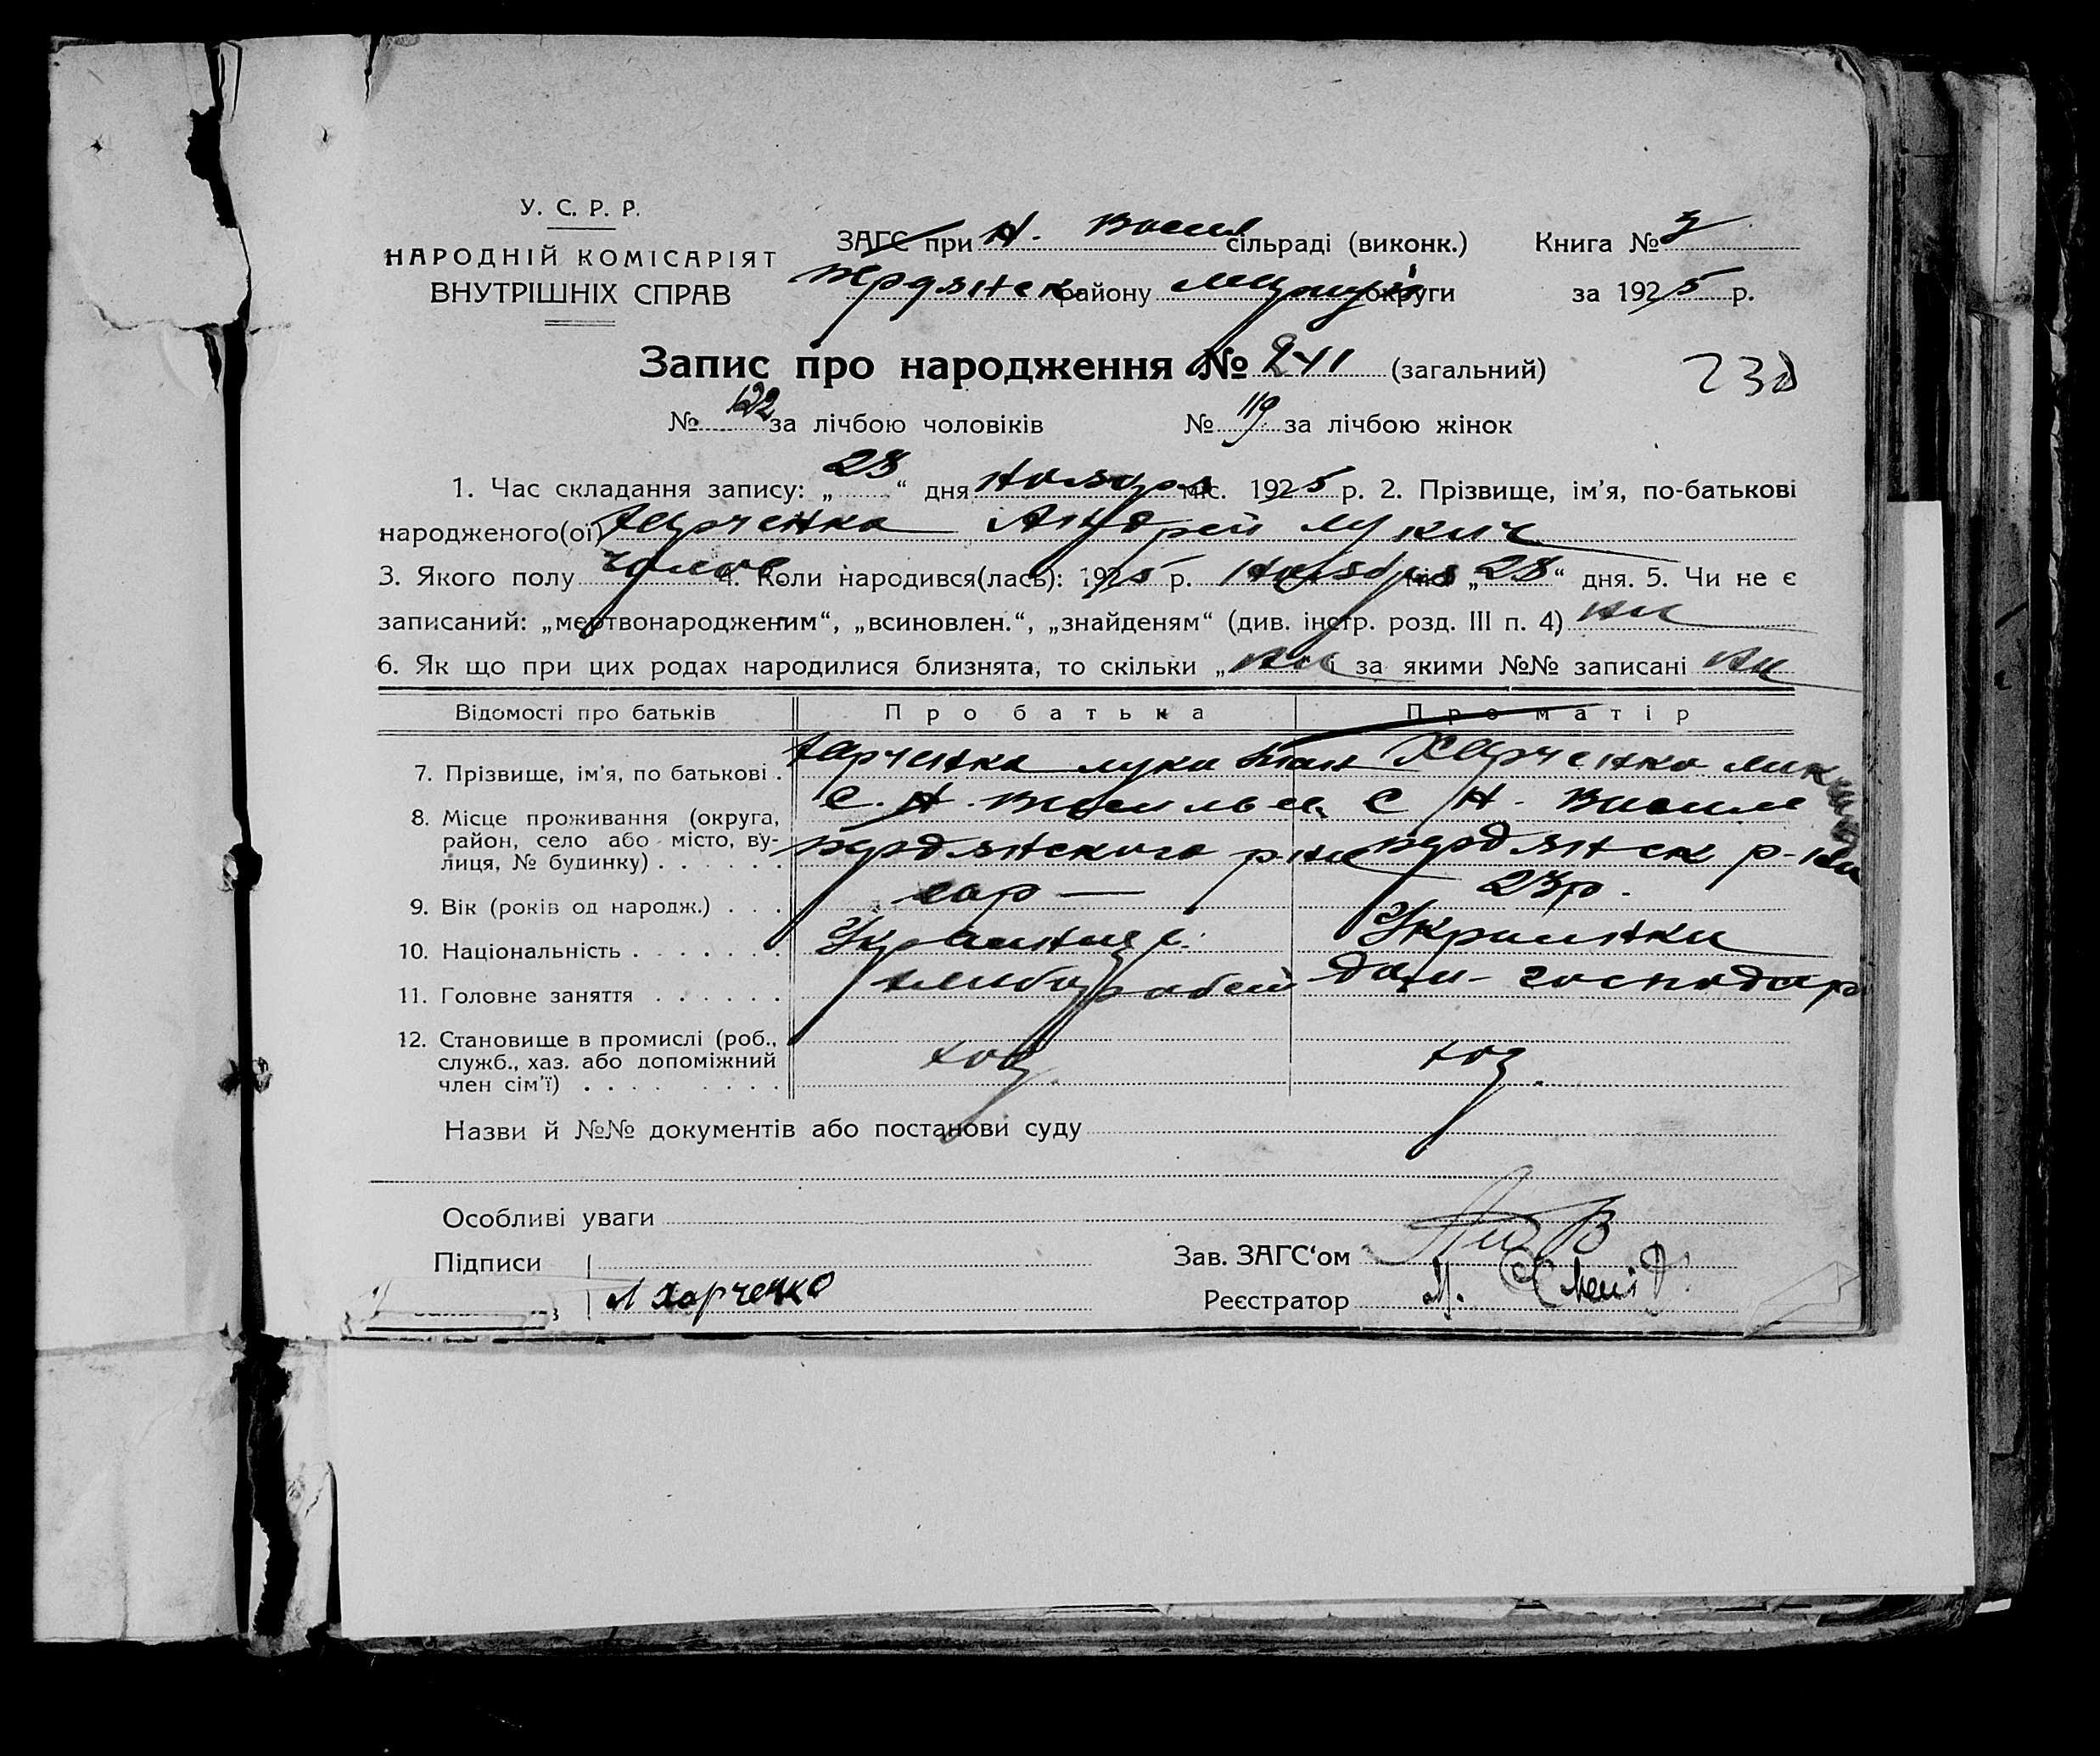 У. С. Р. Р.
НАРОДНІЙ КОМІСАРІЯТ
ВНУТРІШНІХ СПРАВ
ЗАГС при Н. Васил сільраді (виконк.) Книга № 3
Бердянск району округи за 1925 р.
Запис про народження № 241 (загальний)
238
№ 122 за лічбою чоловіків № 119 за лічбою жінок
1. Час складання запису: „28“ дня Ноября міс. 1925 р. 2. Прізвище, ім'я, по-батькові
народженого(ої) Харченко Андрей Лукич
3. Якого полу чолов 4. Коли народився(лась): 1925 р. Ноября міс „28“ дня. 5. Чи не є
записаний: „мертвонародженим“, „всиновлен.“, „знайденям“ (див. інстр. розд. III п. 4) ни
6. Як що при цих родах народилися близнята, то скільки „ни і за якими №№ записані ни
Відомості про батьків Про батька Про матір
7. Прізвище, ім'я, по батькові . Харченко Лука Харченко
8. Місце проживання (округа, район, село або місто, вулиця, № будинку) . . . . . . С. Н. Васильев С Н. Васил
Бердянского р-на Бердянск р-на
9. Вік (років од народж.) . . . 23р.
10. Національність . . . . . . . Українка
11. Головне заняття . . . . . . хлібороб дом-господар
12. Становище в промислі (роб., служб., хаз. або допоміжний член сім'ї) . . . . . . . . . хоз хоз.
Назви й №№ документів або постанови суду
Особливі уваги
Підписи Зав. ЗАГС‘ом
Л Харченко Реєстратор М.